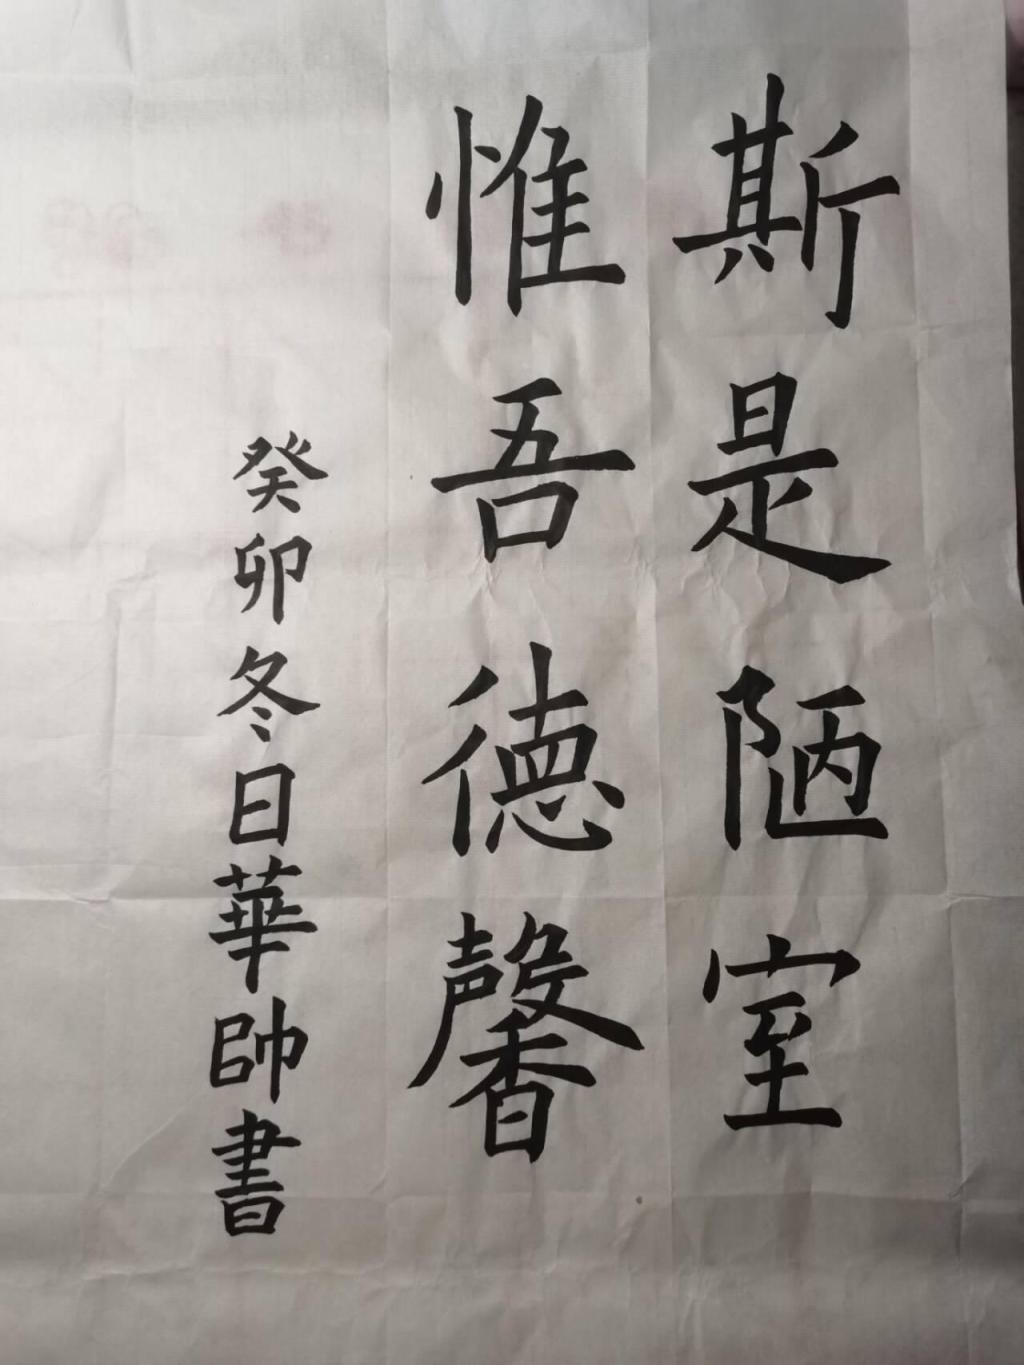 斯是陋室
惟吾德馨
癸卯冬日華帥書